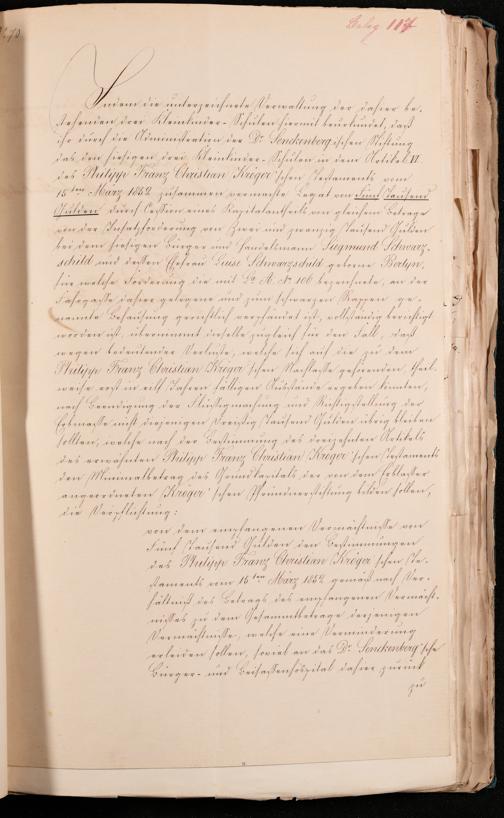 Beleg 117
Indem die unterzeichnete Verwaltung der dahier be-
stehenden drei Kleinkinder-Schulen hiermit beurkundet, daß
ihr durch die Administration der Dr. Senckenberg'schen Stiftung
das den hiesigen drei Kleinkinder-Schulen in dem Artikel VI
des Philipp Franz Christian Kröger'schen Testaments vom
15ten März 1842 zusammen vermachte Legat von Fünf Tausend
Gulden durch Cession eines Kapitalantheils von gleichem Betrage
von der Insatzforderung von Zwei und zwanzig Tausend Gulden
bei dem hiesigen Bürger und Handelsmann Siegmund Schwarz-
schild und dessen Ehefrau Luise Schwarzschild geborne
für welche Forderung die mit Lit. A. No 106 bezeichnete, an der
Fahrgasse dahier gelegene und zum schwarzen Rappen ge-
nannte Behausung gerichtlich verpfändet ist, vollständig berichtigt
worden ist, übernimmt dieselbe zugleich für den Fall, daß
wegen bedeutender Verluste, welche sich auf die zu dem
Philipp Franz Christian Kröger'schen Nachlasse gehörenden theil-
weise erst in elf Jahren fälligen Ausstände ergeben könnten,
nach Beendigung der Flüssigmachung und Richtigstellung der
Erbmasse nicht diejenigen Dreißig Tausend Gulden übrig bleiben
sollten, welche nach der Bestimmung des dreizehnten Artikels
des erwähnten Philipp Franz Christian Kröger'schen Testaments
den Minimalbetrag des Grundkapitals der von dem Erblasser
angeordneten Kröger'schen Pfründnerstiftung bilden sollen,
die Verpflichtung:
von dem empfangenen Vermächtnisse von
Fünf Tausend Gulden den Bestimmungen
des Philipp Franz Christian Kröger'schen Te-
staments vom 15ten März 1842 gemäß nach Ver-
hältniß des Betrags des empfangenen Vermächt-
nisses zu dem Gesammtbetrage derjenigen
Vermächtnisse, welche eine Verminderung
erleiden sollen, soviel an das Dr. Senckenberg'sche
Bürger- und Beisassenhospital dahier zurück
zu